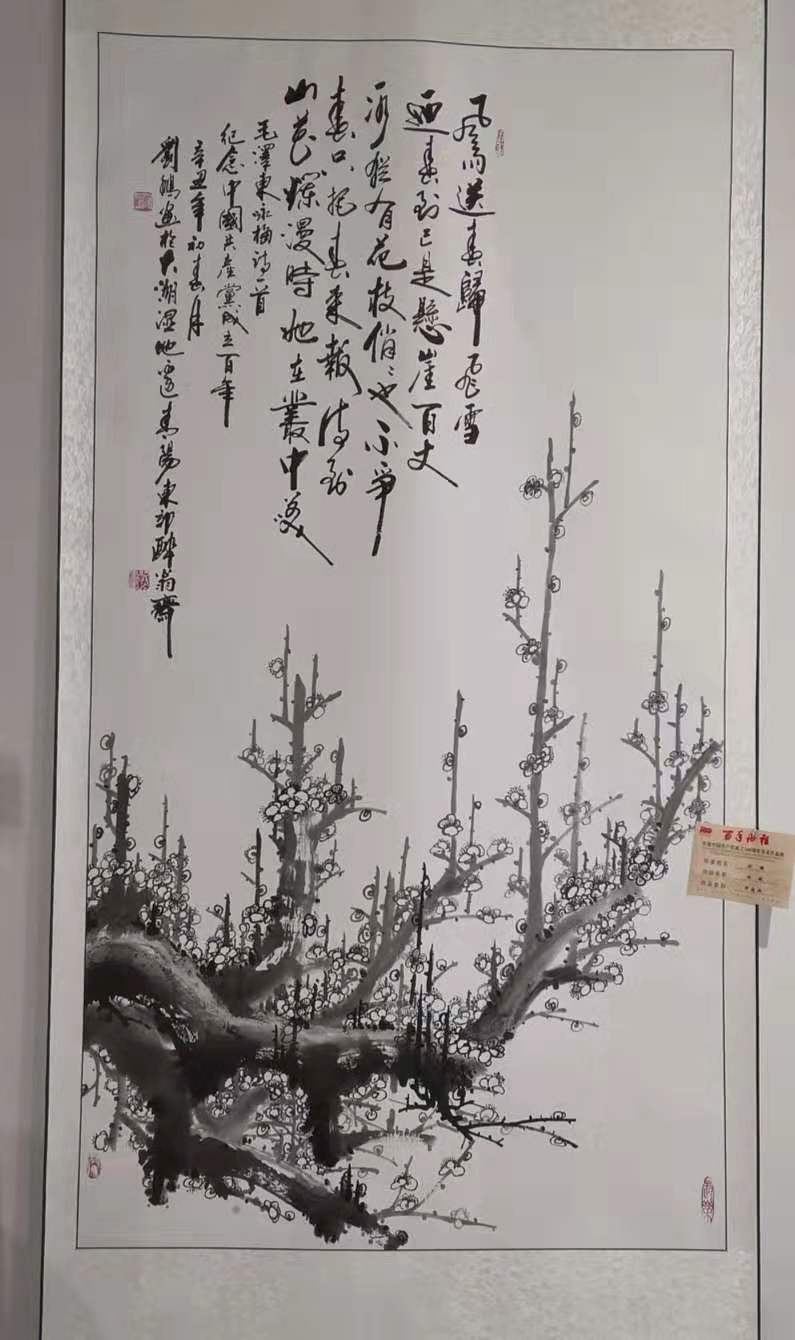 風雨送春歸飛雪
迎春到已是懸崖百丈
冰猶有花枝俏俏也不爭
春只把春來報待到
山花爛漫時她在叢中笑
毛澤東咏梅詩一首
纪念中國共產黨成立百年
辛丑年初春月
劉 畫於大湖湿地邊 陽東 醉翁齋